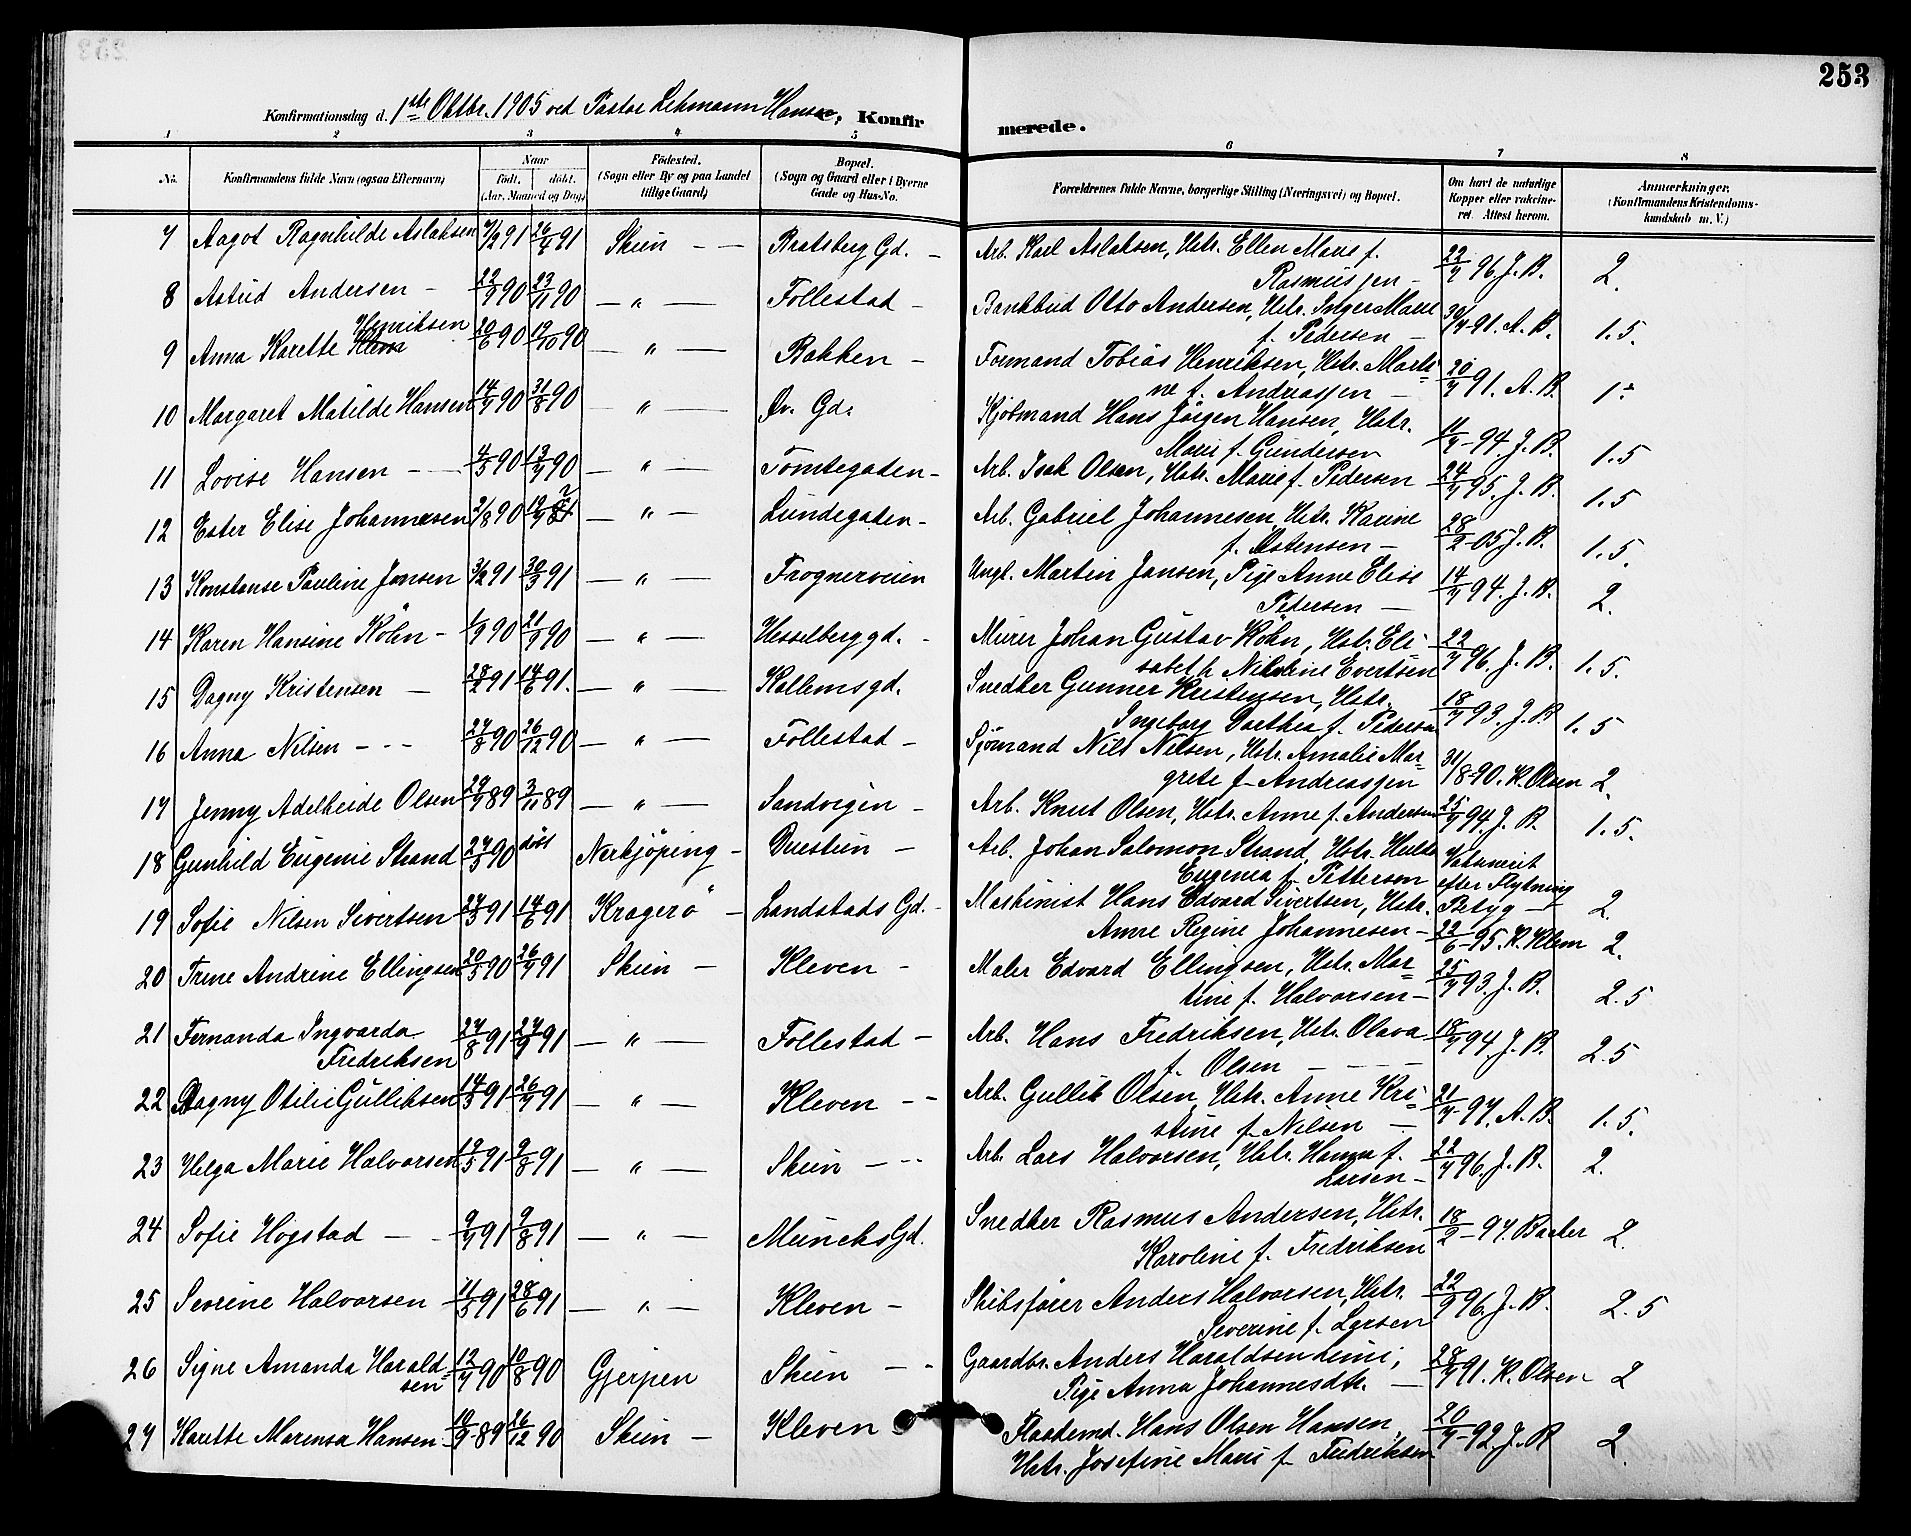 253
Konfirmationsdag d. 1ste Oktbr. 1905 ved Pastor Lehmann Hansen, Konfirmerede.
1 2 3 4 5 6 7 8
No. Konfirmandens fulde Navn (ogsaa Efternavn) Naar født. døbt. (Aar, Maaned og Dag) Fødested. (Sogn eller By og paa Landet tillige Gaard) Bopæl. (Sogn og Gaard eller i Byerne Gade og Hus-No. Forældrenes fulde Navne, borgerlige Stilling (Næringsvei) og Bopæl. Om havt de naturlige Kopper eller vakcineret. Attest herom. Anmærkninger. (Konfirmandens Kristendomskundskab m. V.)
7 Aagot Ragnhilde Aslaksen 7/2 91 26/4 91 Skien — — Bratsberg Gd. — Arb. Karl Aslaksen, Hstr. Ellen Marie f. Rasmussen — 22/7 96. J. B. 2.
8 Astrid Andersen – 22/9 90 23/11 90 — " — Follestad – Bankbud Otto Andersen, Hstr. Inger Marie f. Pedersen — 30/4 91. A. B. 1.5.
9 Anna Karette Henriksen 20/6 90 19/10 90 — " — Bakken – Formand Tobias Henriksen, Hstr. Martine f. Andreassen — 20/7 91. A. B. 1÷
10 Margaret Matilde Hansen 14/7 90 31/8 90 — " — Øv. Gd. Kjøbmand Hans Jörgen Hansen, Hstr. Marie f. Gundersen 11/7 – 94. J. B. 1.5
11 Lovise Hansen – — 4/5 90 13/7 90 — " — Tomtegaden – Arb. Isak Olsen, Hstr. Marie f. Pedersen 24/7 95. J. B. 1.5
12 Ester Elise Johannesen 2/8 90 — " — Lundegaden – Arb. Gabriel Johannesen, Hstr. Karine f. Astensen — 28/2 – 05 J. B. 1.5.
13 Konstanse Pauline Jansen 3/2 91 30/3 91 — " — Frognerveien Ungk. Martin Jansen, Pige Anne Elise Pedersen — 14/7 94. J. B. 2.
14 Karen Hansine Köhn – 1/7 90 21/9 90 — " — Hesselberg gd. – Murer Johan Gustav Köhn, Hstr. Elisabeth Nilsine Evertsen 22/7 96. J. B. 1.5.
15 Dagny Kristensen — 28/2 91 14/6 91. — " — Kallemsgd. Snedker Gunner Kristensen, Hstr. Ingeborg Dorthea f. Pedersen 18/7 93. J. B 1.5
16 Anna Nilsen – – – 27/8 90 26/12 90 — " — Follestad – Sjømand Nils Nilsen, Hstr. Amalie Margrete f. Andreassen 31/18-90. K. Olsen 2.
17 Jenny Adelheide Olsen 29/9 89 3/11 89 — " — Sandvigen – Arb. Knut Olsen, Hstr. Anne f. Andersen 25/7 94. J. B. 1.5.
18 Gunhild Eugenie Strand 27/5 90 døbt Norkjöping – Duestien – Arb. Johan Salomon Strand, Hstr. Hulda Eugenia f. Petterson Vakcineret efter Flytning Betyg — 2.
19 Sofie Nilsen Sivertsen 27/3 91 14/6 91 Kragerö – Landstads Gd. – Maskinist Hans Edvard Sivertsen, Hstr. Anne Regine Johannesen – 22/6 – 95. K. Klem 2.
20 Trine Andrine Ellingsen 20/5 90 26/7 91 Skien – Kleven – Maler Edvard Ellingsen, Hstr. Martine f. Halvorsen – 25/7 93. J. B. 2.5
21 Fernanda Ingvarda Fredriksen 27/8 91 27/9 91 — " — Follestad – Arb. Hans Fredriksen, Hstr. Olava f. Olsen – – – 18/7 94. J. B. 2.5
22 Dagny Otilie Gulliksen 14/3 91 26/7 91 — " — Kleven – – Arb. Gullik Olsen, Hstr. Anne Kristine f. Nilsen — 21/7 – 97. A. B. 1.5.
23 Helga Marie Halvorsen 19/5 91 9/8 91 — " — Skien – – Arb. Lars Halvorsen, Hstr. Hanna f. Larsen – 22/7 96. J. B. 2.
24 Sofie Hogstad – – 9/7 91 9/8 91 — " — Munchs Gd. Snedker Rasmus Andersen, Hstr. Karoline f. Fredriksen 18/2 – 97. Backer 2.
25 Severine Halvorsen – 11/5 91 28/6 91 — " — Kleven – Skibsfører Anders Halvorsen, Hstr. Severine f. Larsen 22/9 96. J. B. 2.5
26 Signe Amanda Haraldsen 12/7 90 10/8 90 Gjerpen Skien – – Gaardbr. Anders Haraldsen Limi, Pige Anna Johannesdtr. — 28/7 91. K. Olsen 2
27 Karette Marensa Hansen 18/9 – 89 26/12 90 Skien – Kleven Flaademd. Hans Olsen Hansen, Hstr. Josefine Marie f. Fredriksen 20/7 – 92. J. B 2.